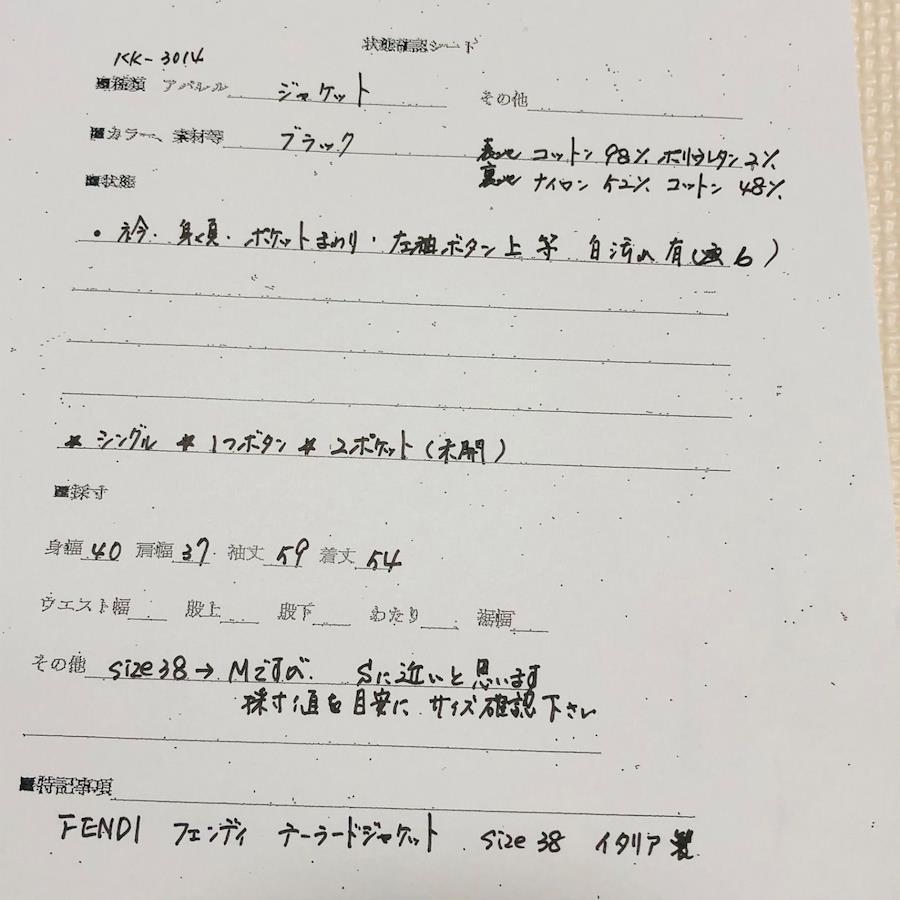 状態確認シート
KK-3014
■種類 アパレル ジャケット その他
■カラー、素材等 ブラック
表地 コットン 98% ポリウレタン 2%
裏地 ナイロン 52% コットン 48%
■状態
• 衿・身頃・ポケットまわり・左袖ボタン上 等 白汚れ 有(
* シングル * 1つボタン * 2ポケット(未開)
■採寸
身幅 40 肩幅 37 袖丈 59 着丈 54
ウエスト幅 股上 股下 わたり 裾幅
その他 size38→Mですが、Sに近いと思います
採寸値を目安に サイズ確認下さい
■特記事項
FENDI フェンディ テーラードジャケット size38 イタリア製